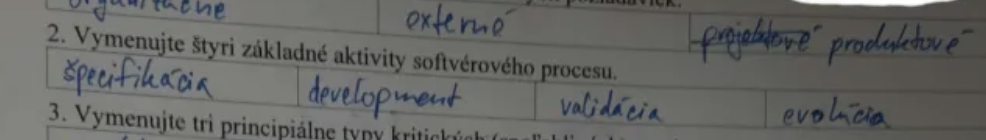 organizačné externé produktové
2. Vymenujte štyri základné aktivity softvérového procesu.
špecifikácia development validácia evolúcia
3. Vymenujte tri principiálne typy kritických